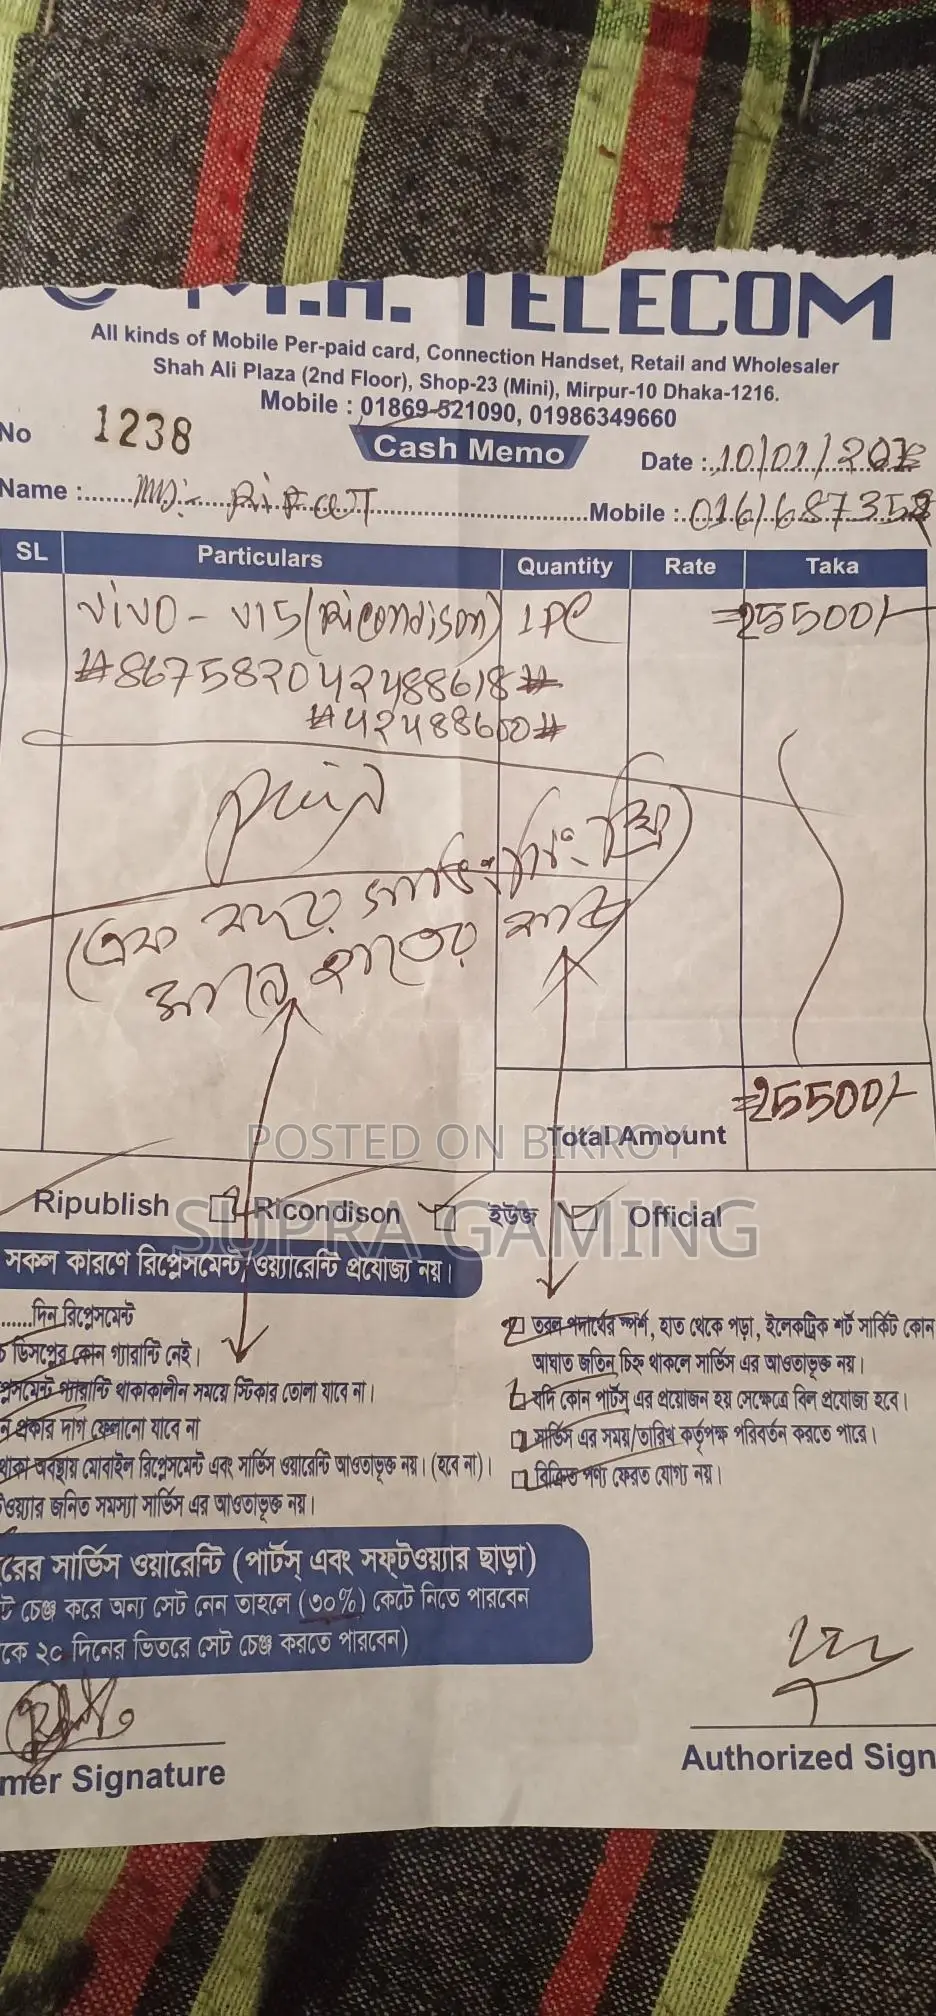 M.H. TELECOM
All kinds of Mobile Per-paid card, Connection Handset, Retail and Wholesaler
Shah Ali Plaza (2nd Floor), Shop-23 (Mini), Mirpur-10 Dhaka-1216.
Mobile : 01869-521090, 01986349660
No 1238
Cash Memo
Date : 10/01/202
Name : MD:- RiFaT
Mobile : 0161687352
SL Particulars Quantity Rate Taka
ViVO - V15 (Ricondison) 1 PC =25500/-
#867582042488618#
#42488600#
Paid
(এক বছর সার্ভিসিং ফ্রি)
Total Amount =25500/-
POSTED ON BIKROY
Ripublish Ricondison ইউজ Official
SUPRA GAMING
সকল কারণে রিপ্লেসমেন্ট, ওয়্যারেন্টি প্রযোজ্য নয়।
......দিন রিপ্লেসমেন্ট
ডিসপ্লের কোন গ্যারান্টি নেই।
প্লেসমেন্ট গ্যারান্টি থাকাকালীন সময়ে স্টিকার তোলা যাবে না।
প্রকার দাগ ফেলানো যাবে না
থাকা অবস্থায় মোবাইল রিপ্লেসমেন্ট এবং সার্ভিস ওয়ারেন্টি আওতাভূক্ত নয়। (হবে না)।
ওয়্যার জনিত সমস্যা সার্ভিস এর আওতাভূক্ত নয়।
তরল পদার্থের স্পর্শ, হাত থেকে পড়া, ইলেকট্রিক শর্ট সার্কিট কোন
আঘাত জনিত চিহ্ন থাকলে সার্ভিস এর আওতাভূক্ত নয়।
যদি কোন পার্টস এর প্রয়োজন হয় সেক্ষেত্রে বিল প্রযোজ্য হবে।
সার্ভিস এর সময়/তারিখ কর্তৃপক্ষ পরিবর্তন করতে পারে।
বিক্রিত পণ্য ফেরত যোগ্য নয়।
রের সার্ভিস ওয়ারেন্টি (পার্টস্ এবং সফ্টওয়্যার ছাড়া)
ট চেঞ্জ করে অন্য সেট নেন তাহলে (৩০%) কেটে নিতে পারবেন
কে ২০ দিনের ভিতরে সেট চেঞ্জ করতে পারবেন)
mer Signature
Authorized Sign